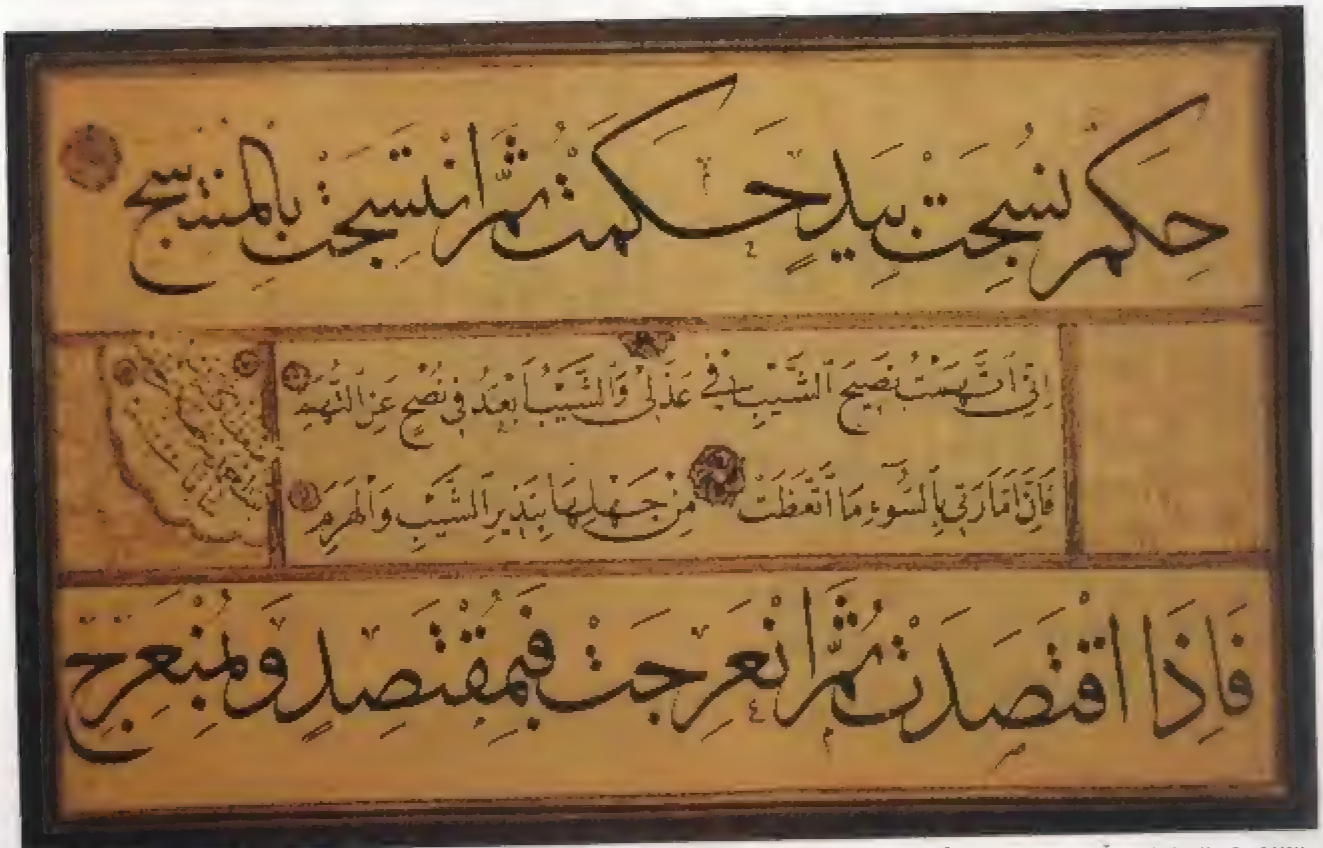 حِكَمٌ نُسِجَتْ بِيَدٍ حَكَمَتْ ثُمَّ انْتَسَجَتْ بِالْمُنْتَسِجِ
اِنِّي اتَّهَمْتُ نَصِيحَ الشَّيْبِ فِي عَذَلِي وَالشَّيْبُ اَبْعَدُ فِي نُصْحٍ عَنِ التُّهَمِ
فَاِنَّ اَمَّارَتِي بِالسُّوٓءِ مَا اتَّعَظَتْ مِنْ جَهْلِهَا بِنَذِيرِ الشَّيْبِ وَالْهَرَمِ
فَاِذَا اقْتَصَدَتْ ثُمَّ انْعَرَجَتْ فَبِمُقْتَصِدٍ وَبِمُنْعَرِجِ